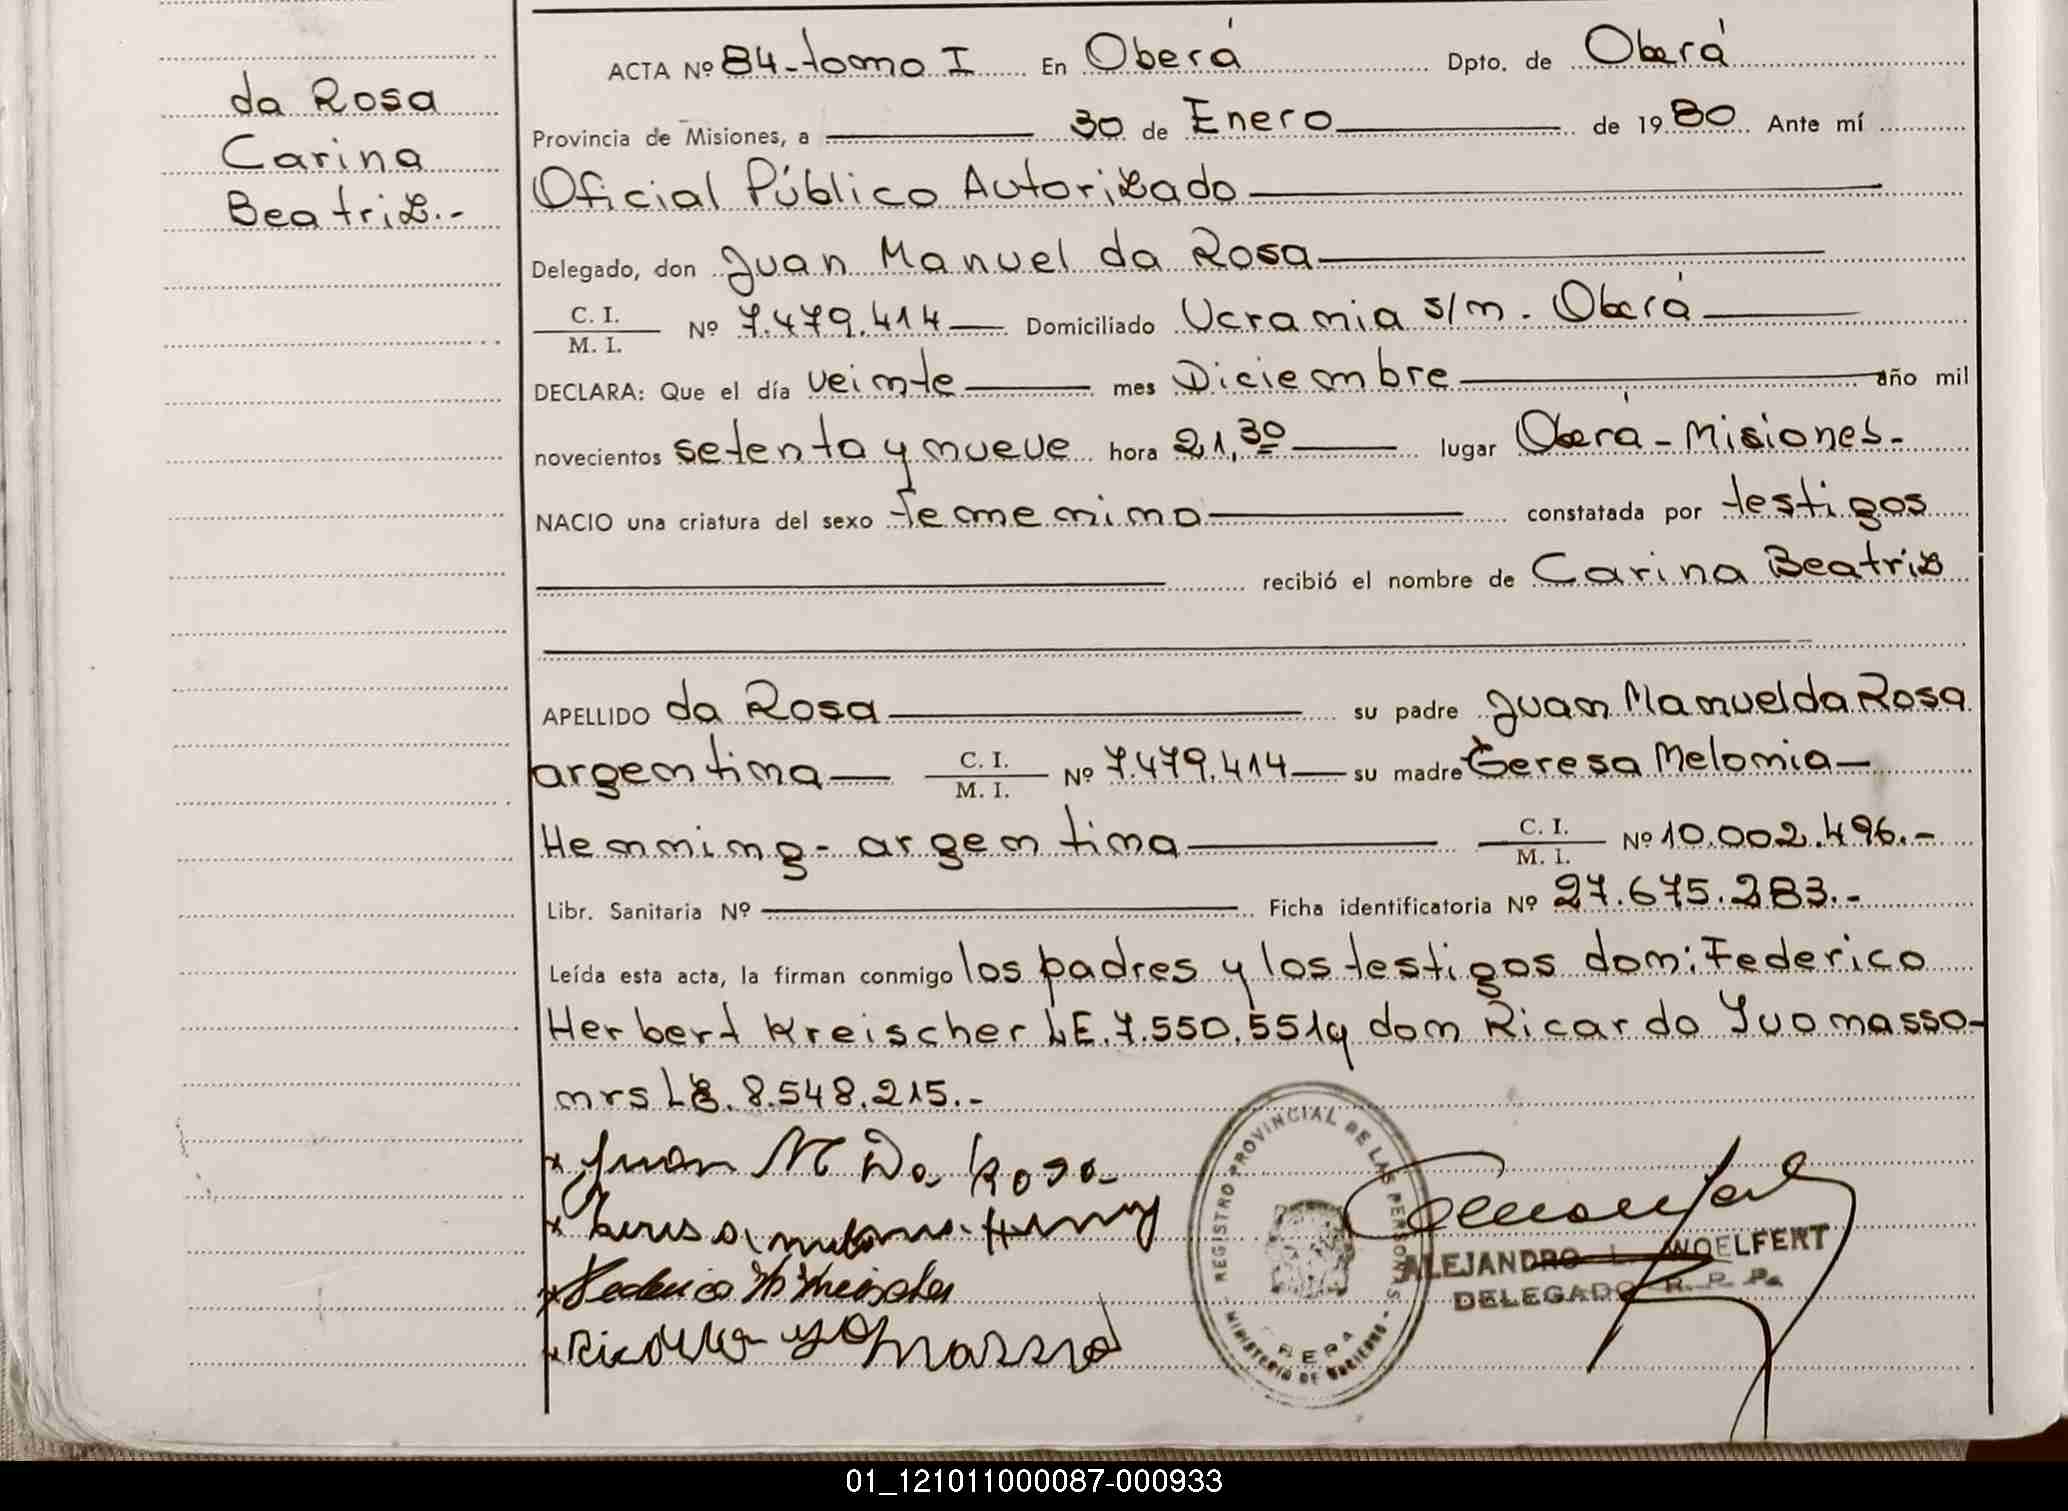 da Rosa
Carina
Beatriz.-
ACTA Nº 84-tomo I En Oberá Dpto. de Oberá
Provincia de Misiones, a 30 de Enero de 1980 Ante mí
Oficial Público Autorizado
Delegado, don Juan Manuel da Rosa
C. I.
M. I. Nº 7.479.414 Domiciliado Ucrania s/n. Oberá
DECLARA: Que el día veinte mes Diciembre año mil
novecientos setenta y nueve hora 21,30 lugar Oberá - Misiones-
NACIO una criatura del sexo femenino constatada por testigos
recibió el nombre de Carina Beatriz
APELLIDO da Rosa su padre Juan Manuel da Rosa
argentina C. I. M. I. Nº 7.479.414 su madre Teresa Melonia
Henning - argentina C. I. M. I. Nº 10.002.496.-
Libr. Sanitaria Nº Ficha identificatoria Nº 27.675.283.-
Leída esta acta, la firman conmigo los padres y los testigos don: Federico
Herbert Kreischer LE. 7.550.551 y don Ricardo Yuomasso-
nrs LE. 8.548.215.-
x Juan M Da Rosa
x Federico H Kreischer
REGISTRO PROVINCIAL DE LAS PERSONAS
MINISTERIO DE GOBIERNO
ALEJANDRO L. WOELFERT
DELEGADO R. P. P.
01_121011000087-000933